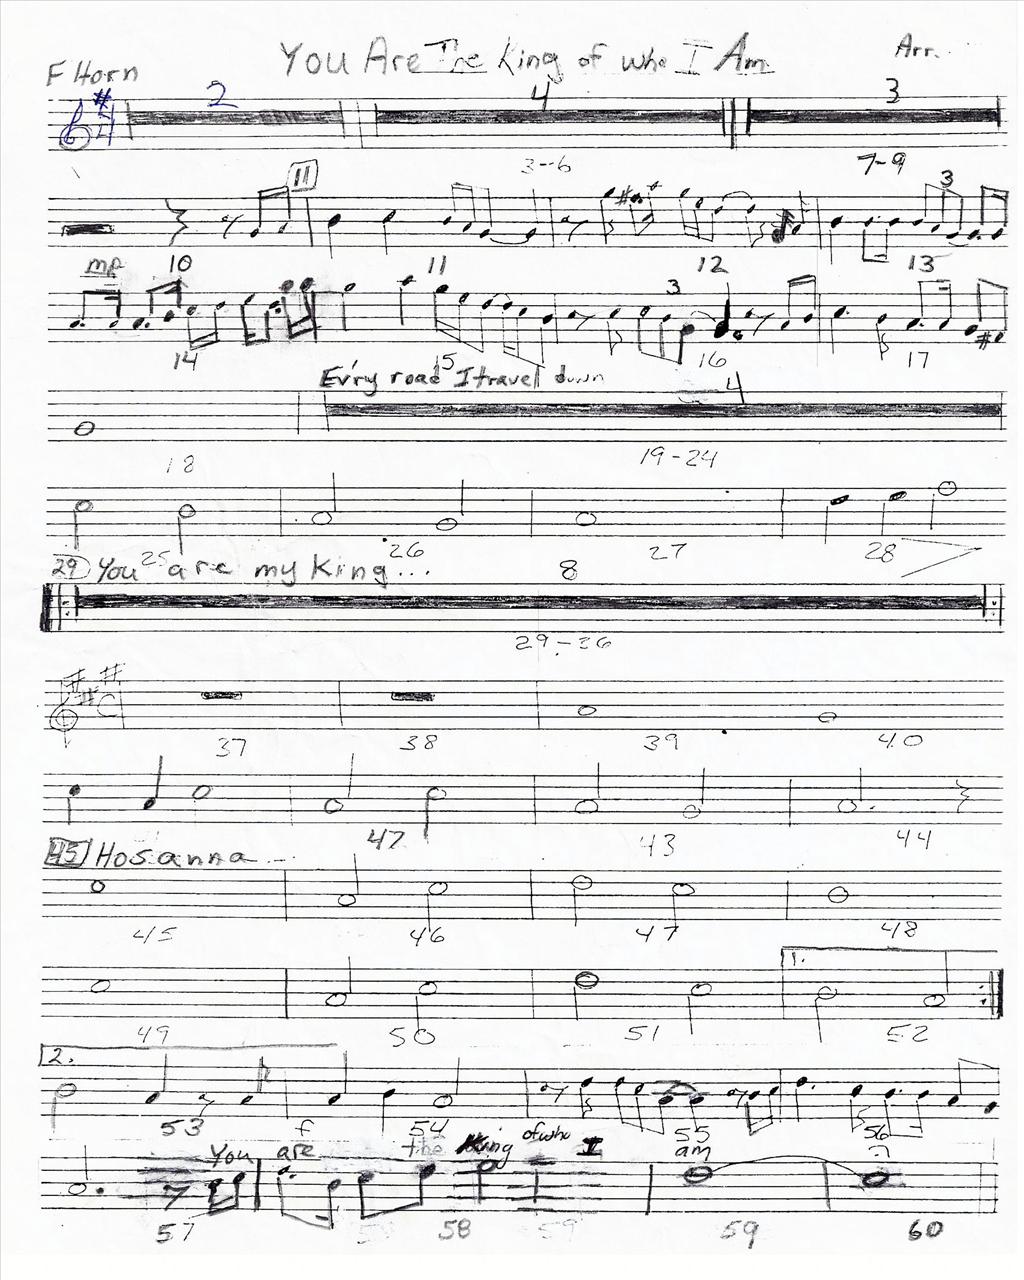 You Are The King of who I Am
Arr.
F Horn
2 4 3
3-6 7-9
11 3
mp 10 11 12 13
3
14 15 16 17
Ev'ry road I travel down 4
18 19-24
25 26 27 28
29 You are my King... 8
29-36
37 38 39 40
47 43 44
45 Hosanna ...
45 46 47 48
1.
49 50 51 52
2.
53 f 54 55 56
You are the King of who I am
57 58 59 59 60